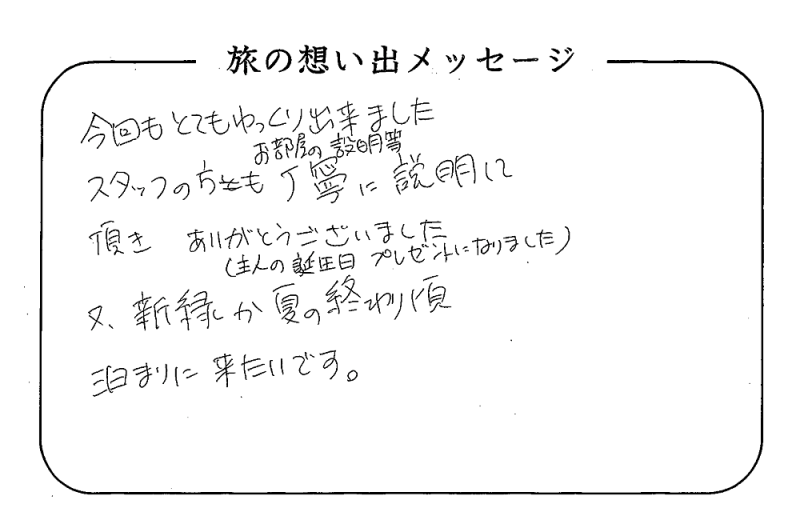 旅の想い出メッセージ
今回もとてもゆっくり出来ました
お部屋の設明等
スタッフの方も丁寧に説明して
頂き ありがとうございました
(主人の誕生日 プレゼントになりました)
又、新緑か夏の終わり頃
泊まりに来たいです。